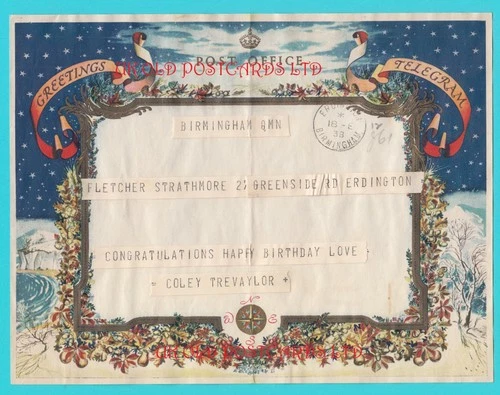 POST OFFICE
GREETINGS TELEGRAM
OLD POSTCARDS LTD
BIRMINGHAM QMN
BIRMINGHAM
FLETCHER STRATHMORE 27 GREENSIDE RD ERDINGTON
CONGRATULATIONS HAPPY BIRTHDAY LOVE
COLEY TREVAYLOR +
N
W E
OLD POSTCARDS LTD